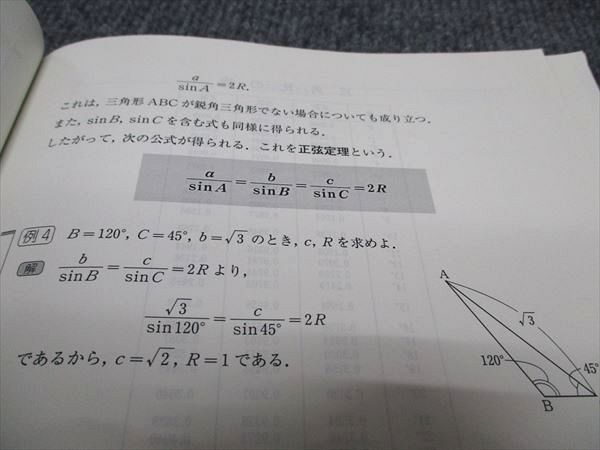 a/sin A = 2R.
これは，三角形 ABC が鋭角三角形でない場合についても成り立つ．
また，sin B，sin C を含む式も同様に得られる．
したがって，次の公式が得られる．これを正弦定理という．
a/sin A = b/sin B = c/sin C = 2R
例4 B=120°，C=45°，b=√3 のとき，c，R を求めよ．
解 b/sin B = c/sin C = 2R より，
√3/sin 120° = c/sin 45° = 2R
であるから，c=√2，R=1 である．
A
√3
120°
45°
B